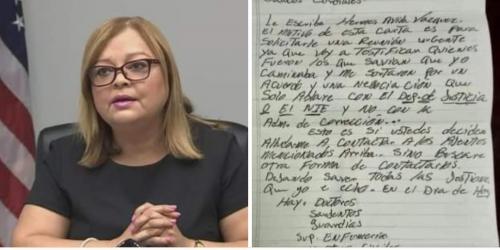 Saludos Cordiales
Le Escribe Hermes Avila Vazquez.
El Motivo de esta carta es para
Solicitarle una Reunion urgente
Ya que voy a Testificar Quienes
Fueron los que Savian que yo
Caminaba y Me Soltaron por un
Acuerdo y una Negociacion que
Solo Ablare con el Dep. de Justicia
O El NIE y no con la
Adm. de Correccion...
Esto es Si ustedes deciden
a Contactar A los Agentes
Mencionados Arriba. Sino Buscare
otra forma de Contactarles.
Dejando Saver Todas las Justicia
Que yo e echo. En el Dia de Hoy
Hay. Doctores
Sargentos
Guardias
Sup. Enfumeria